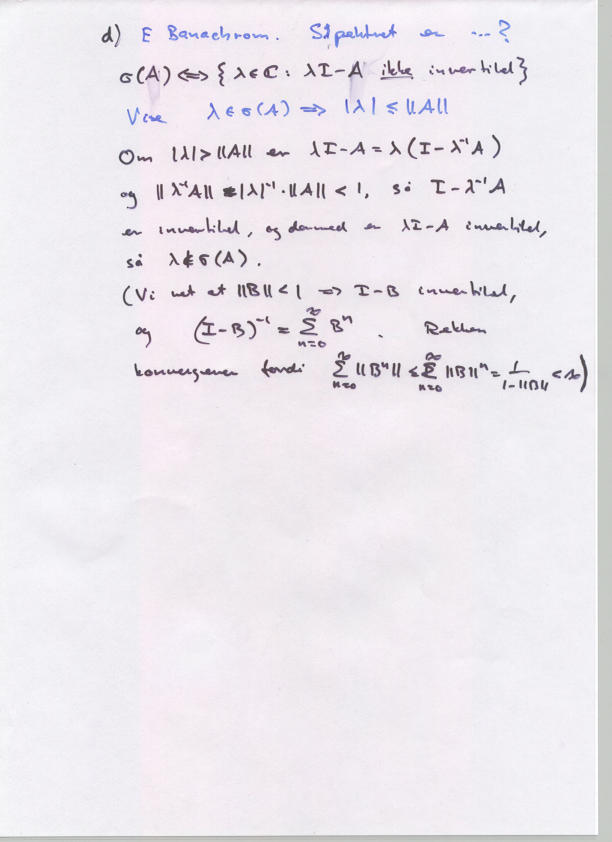 d) E Banachrom. Spektret er ...?
σ(A) ⟺ {λ ∈ ℂ : λI − A ikke invertibel}
Vise λ ∈ σ(A) ⟹ |λ| ≤ ||A||
Om |λ| > ||A|| er λI − A = λ(I − λ⁻¹A)
og ||λ⁻¹A|| = |λ|⁻¹·||A|| < 1, så I − λ⁻¹A
er invertibel, og dermed er λI − A invertibel,
så λ ∉ σ(A).
(Vi vet at ||B|| < 1 ⟹ I − B invertibel,
og (I − B)⁻¹ = ∑_{n=0}^∞ Bⁿ. Rekken
konvergerer fordi ∑_{n=0}^∞ ||Bⁿ|| ≤ ∑_{n=0}^∞ ||B||ⁿ = 1/(1−||B||) < ∞)